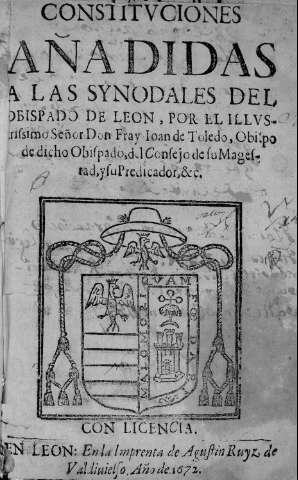 CONSTITVCIONES
AÑADIDAS
A LAS SYNODALES DEL
OBISPADO DE LEON, POR EL ILLVS-
trissimo Señor Don Fray Ioan de Toledo, Obispo
de dicho Obispado, del Consejo de su Mages-
tad, y su Predicador, &c.
MALO MORI QVAM FOEDARI
CON LICENCIA.
EN LEON: En la Imprenta de Agustin Ruyz de
Valdiuielso. Año de 1672.